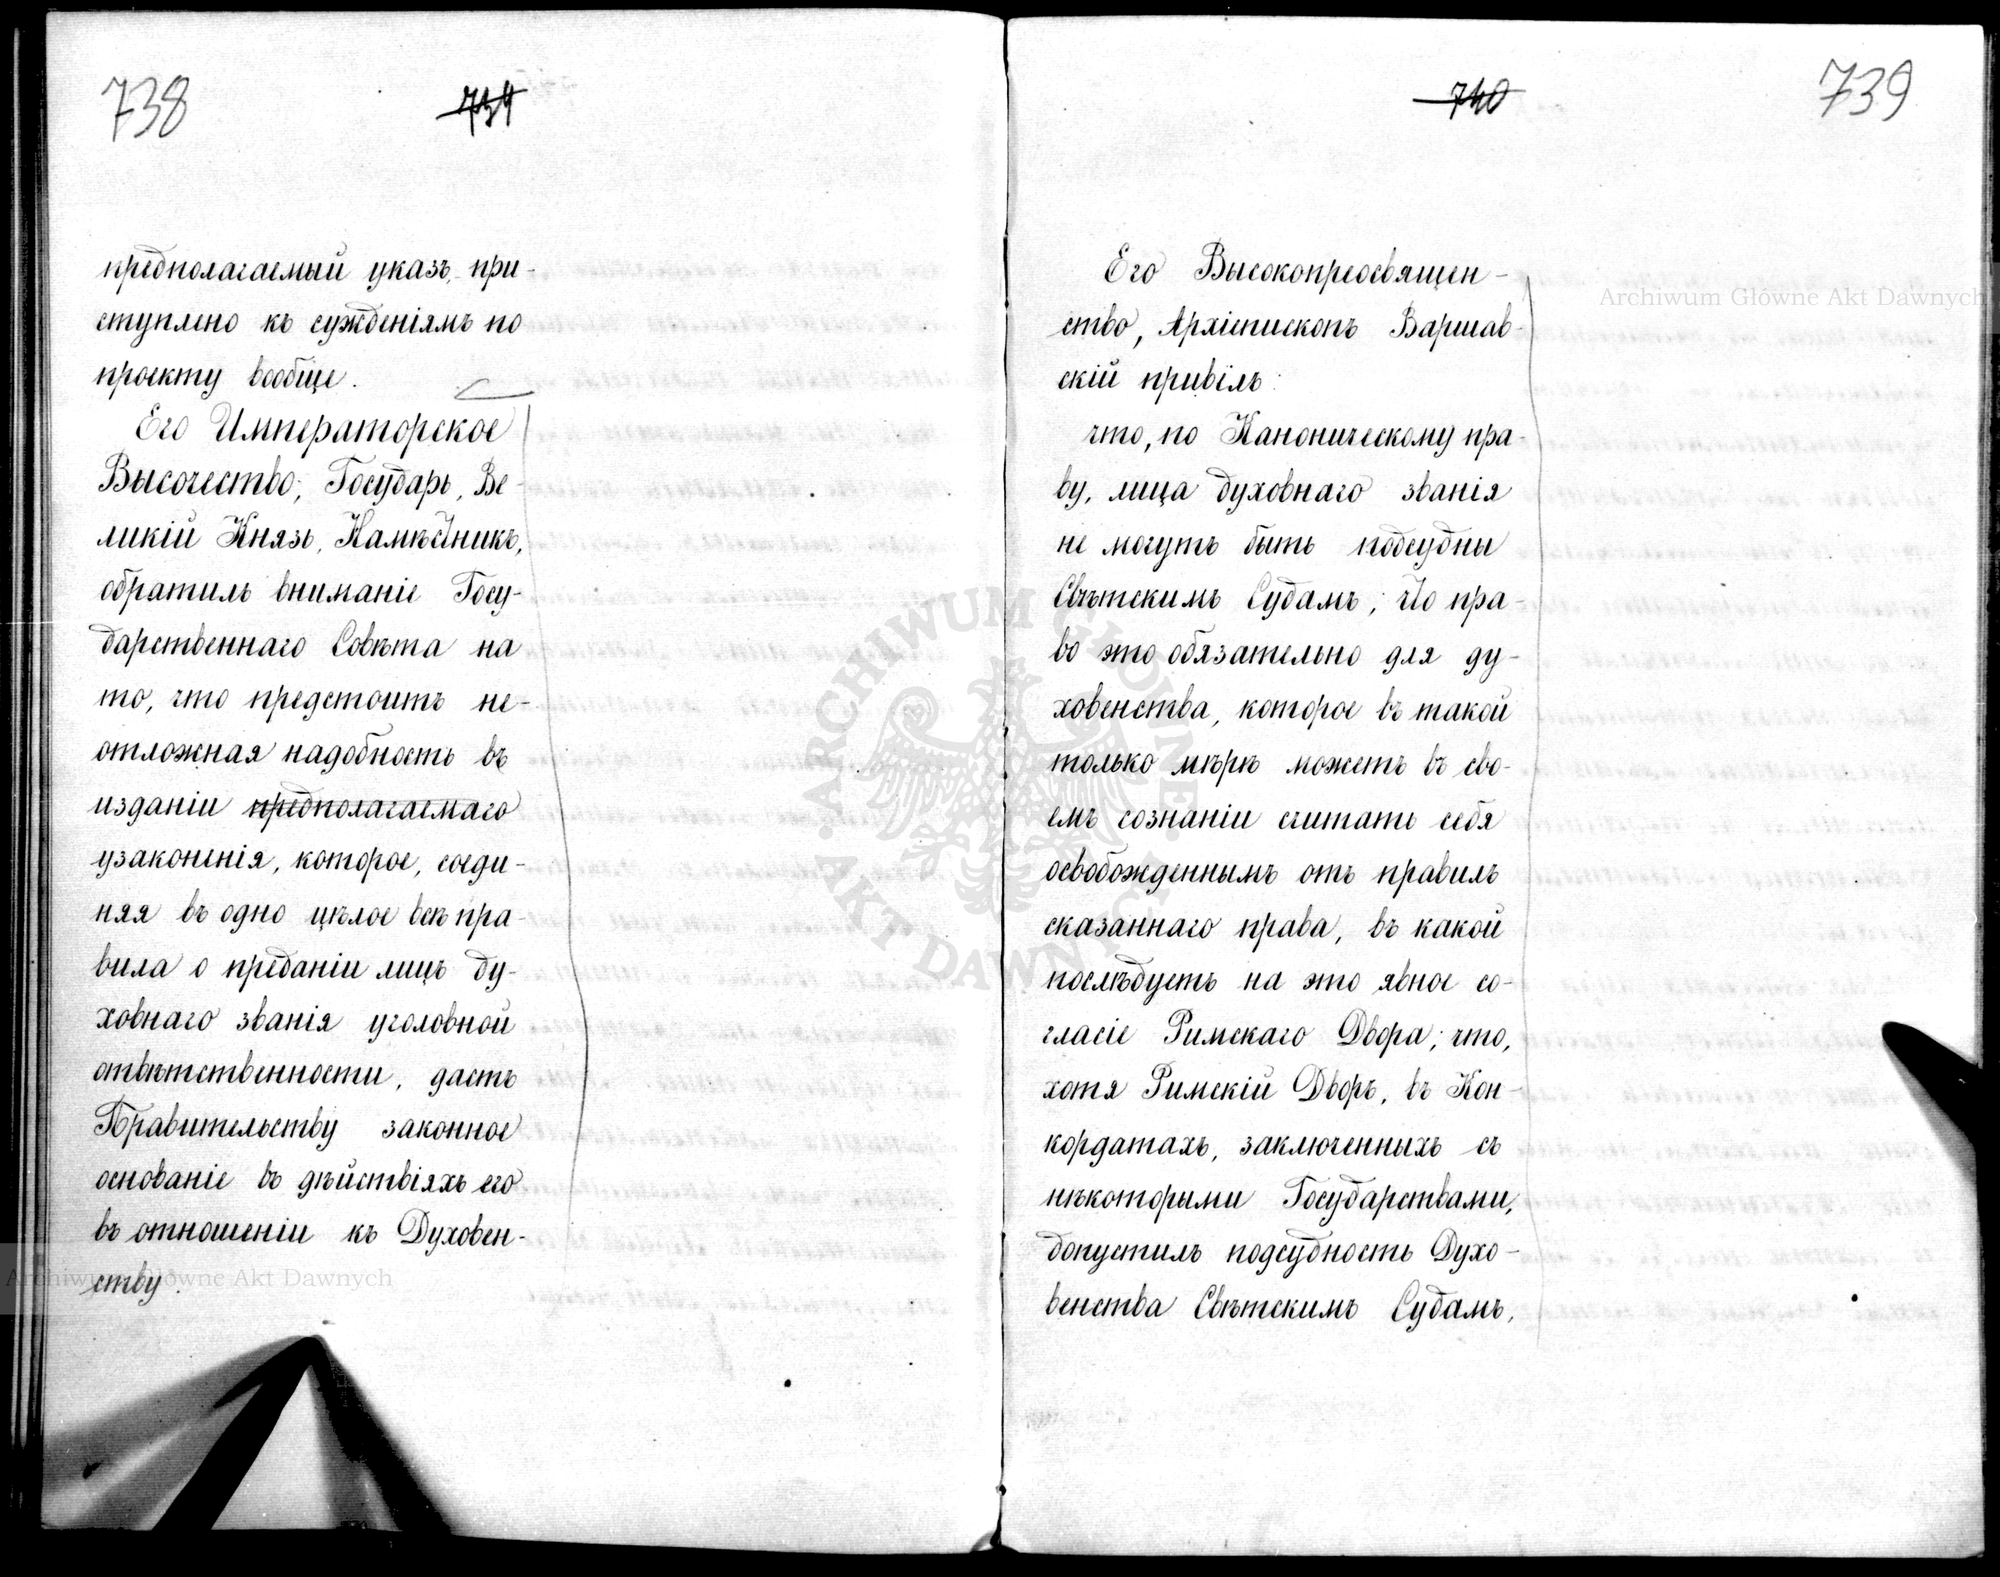 738
739
предполагаемый указъ, при-
ступлено къ сужденіямъ по
проекту вообще.
Его Императорское
Высочество, Государь, Ве-
ликій Князь, Намѣстникъ,
обратилъ вниманіе Госу-
дарственнаго Совѣта на
то, что предстоитъ не-
отложная надобность въ
изданіи предполагаемаго
узаконенія, которое, соеди-
няя въ одно цѣлое всѣ пра-
вила о преданіи лицъ ду-
ховнаго званія уголовной
отвѣтственности, дастъ
Правительству законное
основаніе въ дѣйствіяхъ его
въ отношеніи къ Духовен-
ству.
740
739
Его Высокопреосвящен-
ство, Архіепископъ Варшав-
скій
что, по Каноническому пра-
ву, лица духовнаго званія
не могутъ быть подсудны
Свѣтскимъ Судамъ; что пра-
во это обязательно для ду-
ховенства, которое въ такой
только мѣрѣ можетъ въ сво-
емъ сознаніи считать себя
освобожденнымъ отъ правилъ
сказаннаго права, въ какой
послѣдуетъ на это явное со-
гласіе Римскаго Двора; что,
хотя Римскій Дворъ, въ Кон-
кордатахъ, заключенныхъ съ
нѣкоторыми Государствами,
допустилъ подсудность Духо-
венства Свѣтскимъ Судамъ,
Archiwum Główne Akt Dawnych
Archiwum Główne Akt Dawnych
ARCHIWUM GŁÓWNE AKT DAWNYCH